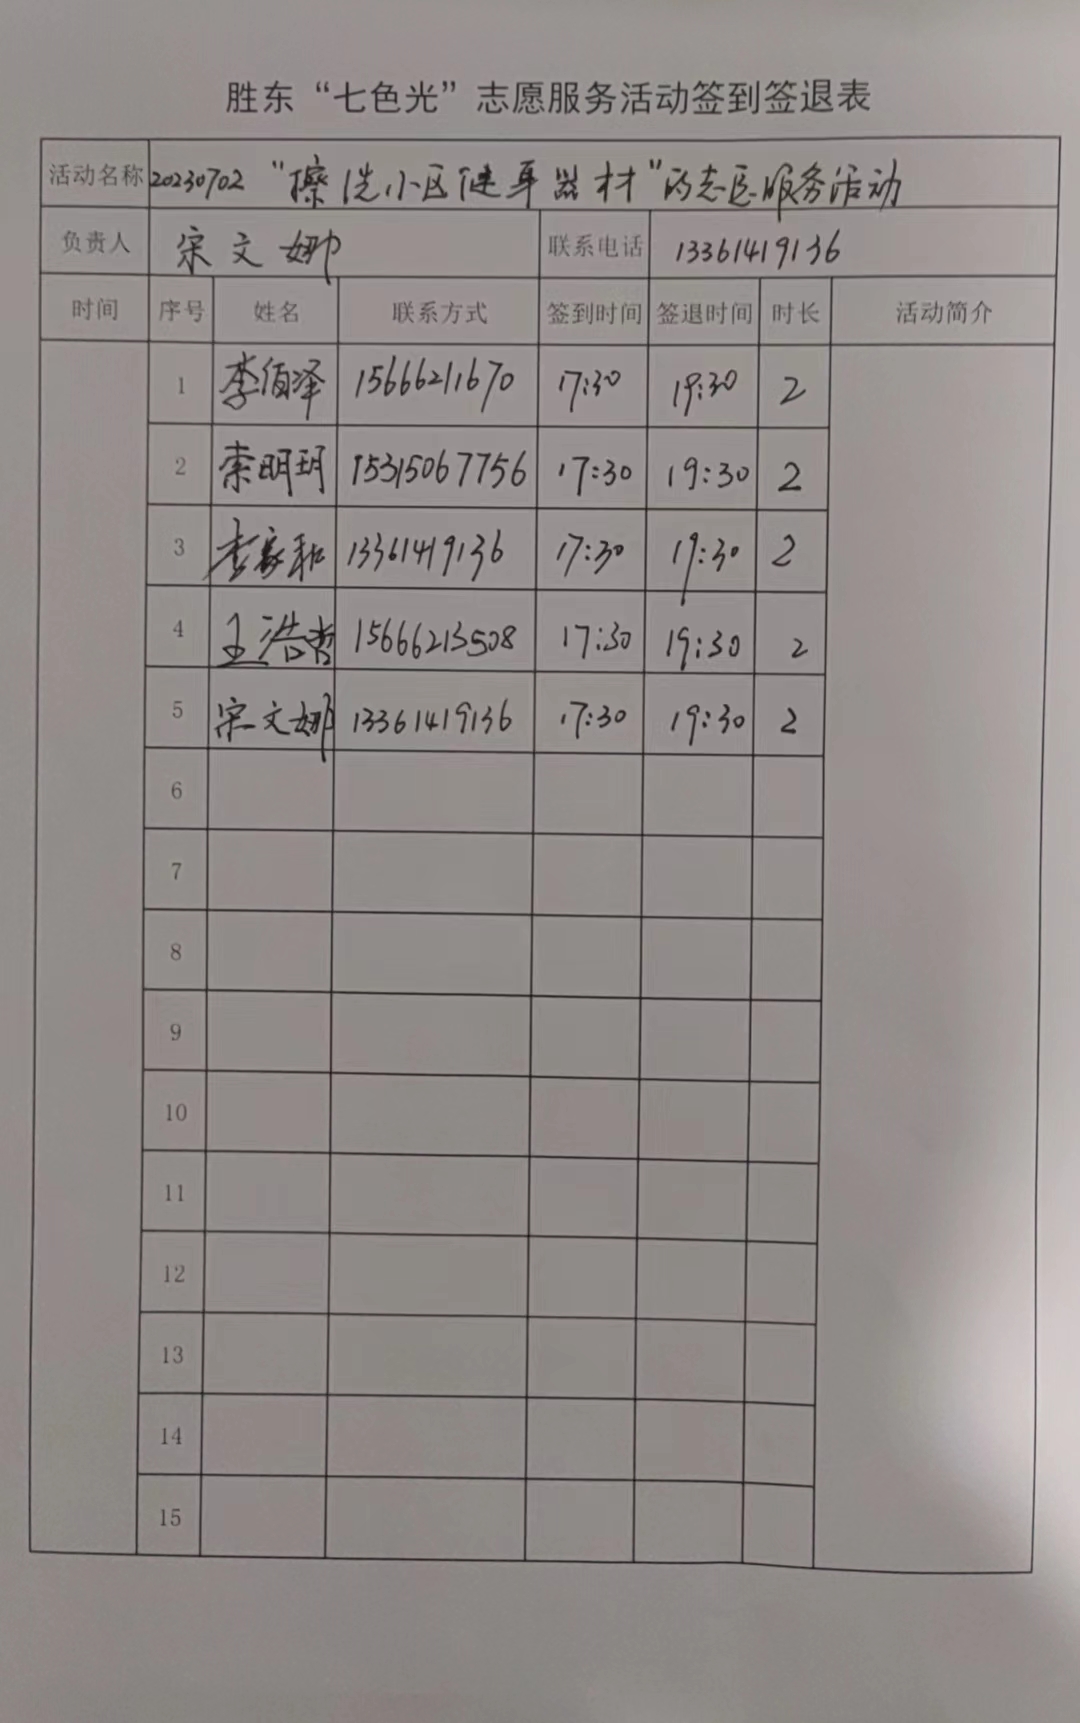 胜东“七色光”志愿服务活动签到签退表
活动名称 20230702 “擦洗小区健身器材”的志愿服务活动
负责人 宋文娜 联系电话 13361419136
时间 序号 姓名 联系方式 签到时间 签退时间 时长 活动简介
1 李佰泽 15666211670 17:30 19:30 2
2 索明玥 15315067756 17:30 19:30 2
3 李家和 13361419136 17:30 19:30 2
4 王浩哲 15666213508 17:30 19:30 2
5 宋文娜 13361419136 17:30 19:30 2
6
7
8
9
10
11
12
13
14
15